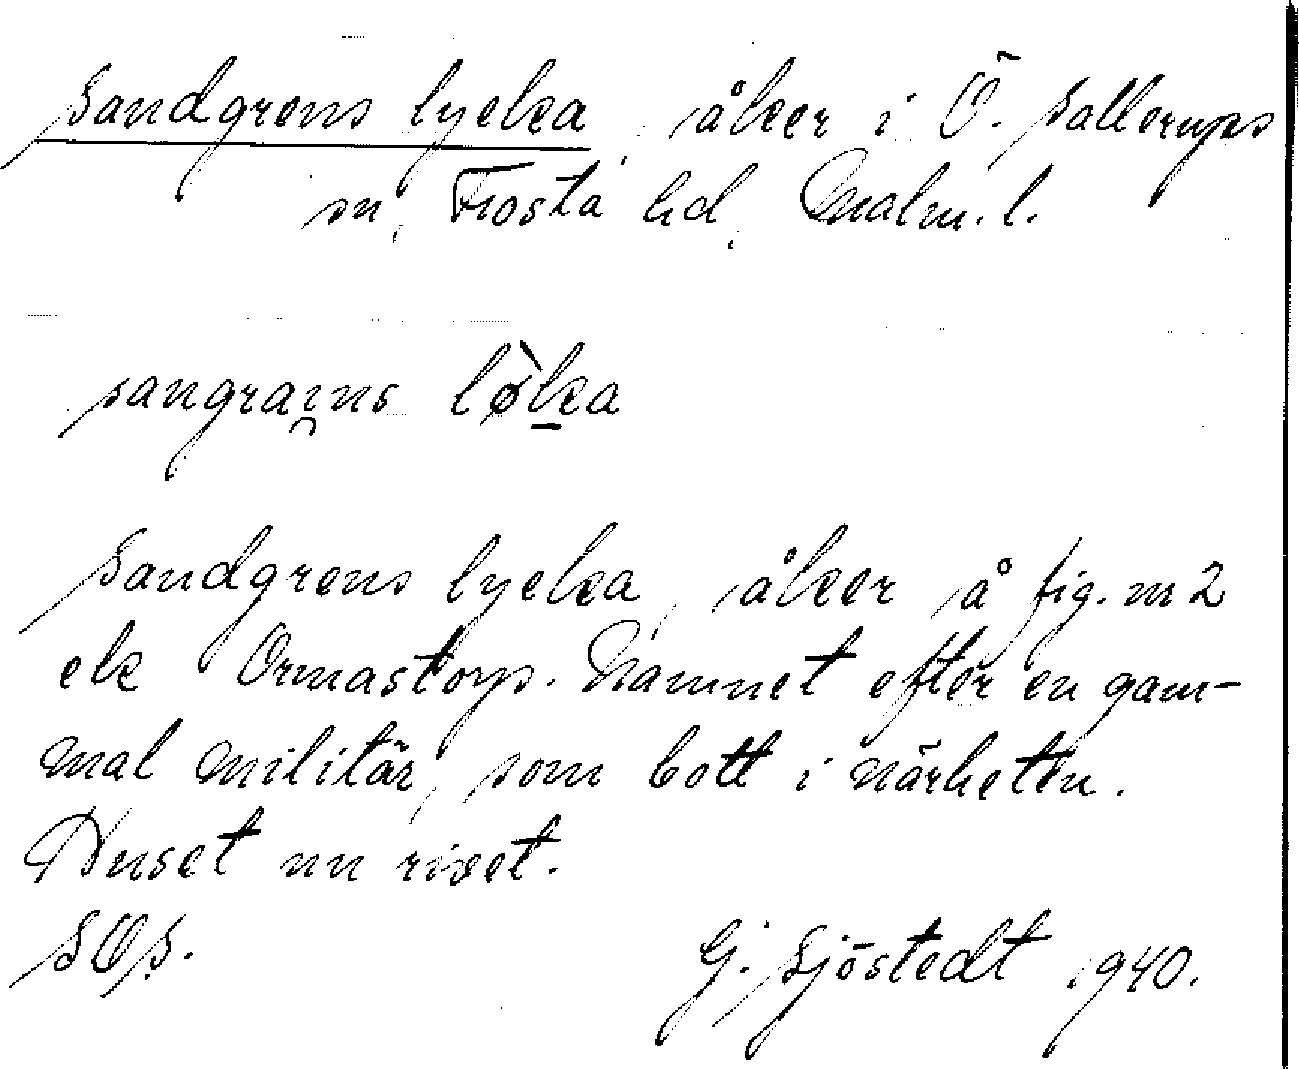 Sandgrens lycka, åker i Ö. Sallerups
sn, Frosta hd, Malm. l.
sangra̯ı̯ns lø̀k̠a
Sandgrens lycka, åker å fig. nr 2
ek Ormastorp. Namnet efter en gam-
mal militär, som bott i närheten.
Huset nu rivet.
SOS.
G. Sjöstedt 1940.